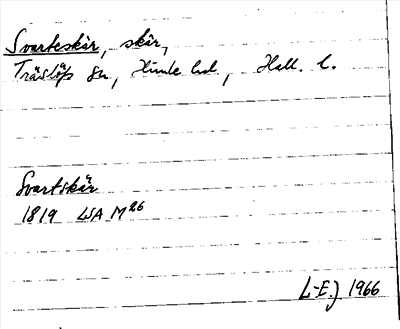 Svarteskär, skär,
Träslöfs sn, Himle hd., Hall. l.
Svartskär
1819 LSA M26
L-E.J 1966